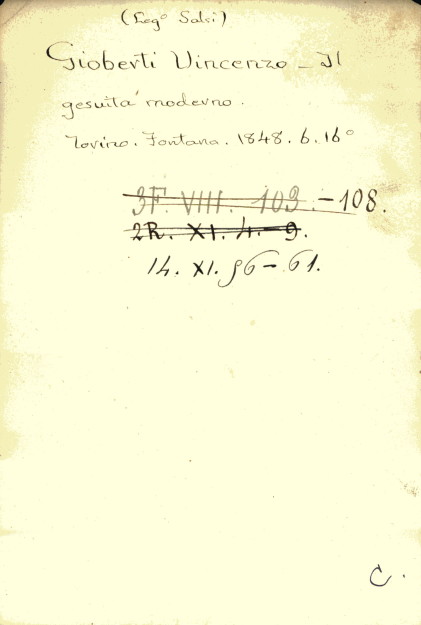 (Leg° Salvi)
Gioberti Vincenzo - Il
gesuita moderno.
Torino. Fontana. 1848. 6. 16°
3F. VIII. 103. - 108.
2R. XI. 4. - 9.
14. XI. 56 - 61.
C.